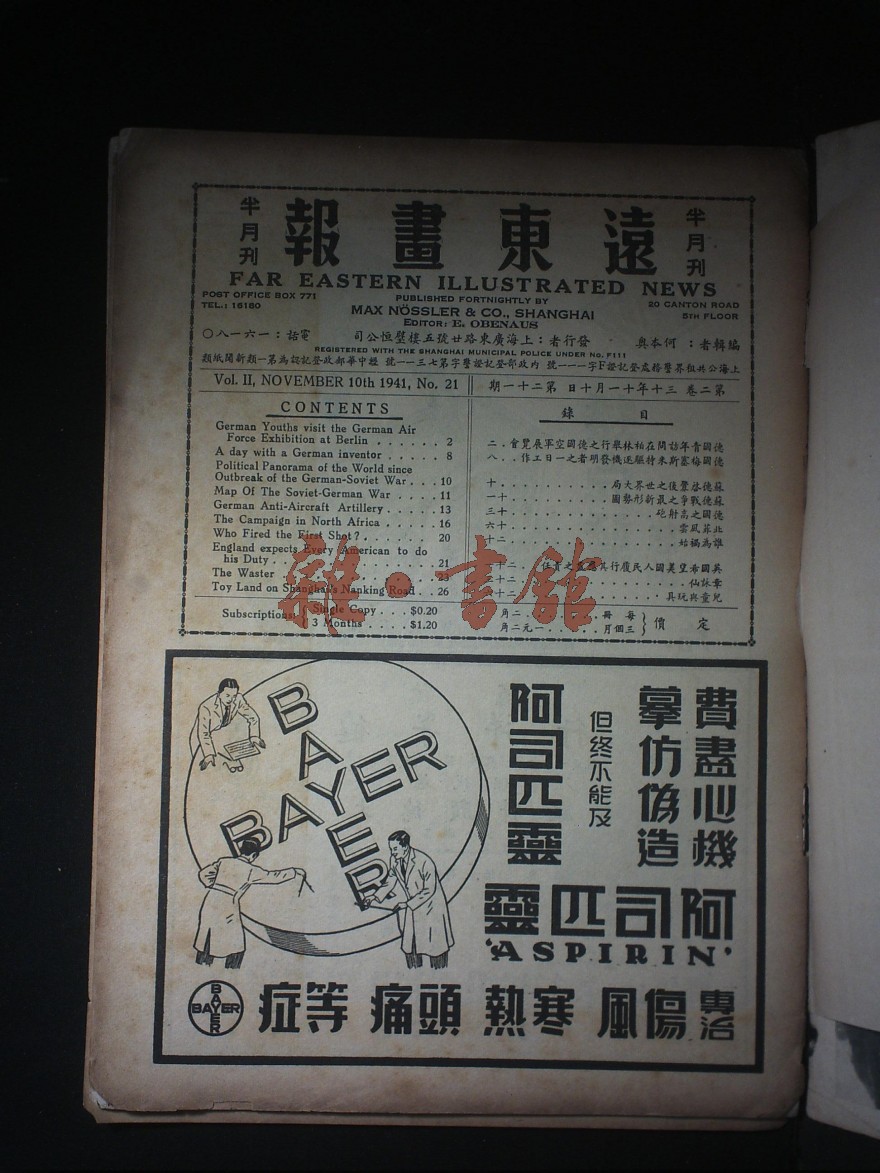 半月刊
遠東畫報
半月刊
FAR EASTERN ILLUSTRATED NEWS
POST OFFICE BOX 771
TEL.: 16180
PUBLISHED FORTNIGHTLY BY
MAX NÖSSLER & CO., SHANGHAI
EDITOR: E. OBENAUS
20 CANTON ROAD
5TH FLOOR
編輯者：何本奧 發行者：上海廣東路廿號五樓壁恒公司 電話：一六一八〇
REGISTERED WITH THE SHANGHAI MUNICIPAL POLICE UNDER No. F111
上海公共租界警務處登記證F字一一一號 內政部登記證警字第七三一一號 經中華郵政登記認為第一類新聞紙類
Vol. II, NOVEMBER 10th 1941, No. 21
第二卷 三十年十一月十日 第二十一期
CONTENTS
German Youths visit the German Air
Force Exhibition at Berlin . . . . . . 2
A day with a German inventor . . . . . 8
Political Panorama of the World since
Outbreak of the German-Soviet War . . . 10
Map Of The Soviet-German War . . . . 11
German Anti-Aircraft Artillery . . . . . 13
The Campaign in North Africa . . . . . 16
Who Fired the First Shot? . . . . . . . 20
England expects Every American to do
his Duty . . . . . . . . . . . . . . . 21
The Waster . . . . . . . . . . . . . 23
Toy Land on Shanghai's Nanking Road . . 26
目錄
德國青年訪問在柏林舉行之德國空軍展覽會 . 二
德國梅塞斯米特驅逐機發明者之一日工作 . . 八
蘇德啓釁後之世界大局 . . . 十
蘇德戰爭之最新形勢圖 . . . 十一
德國之高射砲 . . . 十三
北菲風雲 . . . 十六
誰為禍始 . . . 二十
英國希望美國人民履行其應盡之責任 . . 二十
章詠仙 . . . 二十
兒童與玩具 . . . 二十
Subscriptions: Single Copy . . . $0.20
3 Months . . . . $1.20
定價 每冊 . . . 二角
三個月 . . . 一元二角
雜·書館
費盡心機
摹仿偽造
但終不能及
阿司匹靈
BAYER
BAYER
阿司匹靈
'ASPIRIN'
專治傷風 寒熱 頭痛 等症
BAYER
BAYER